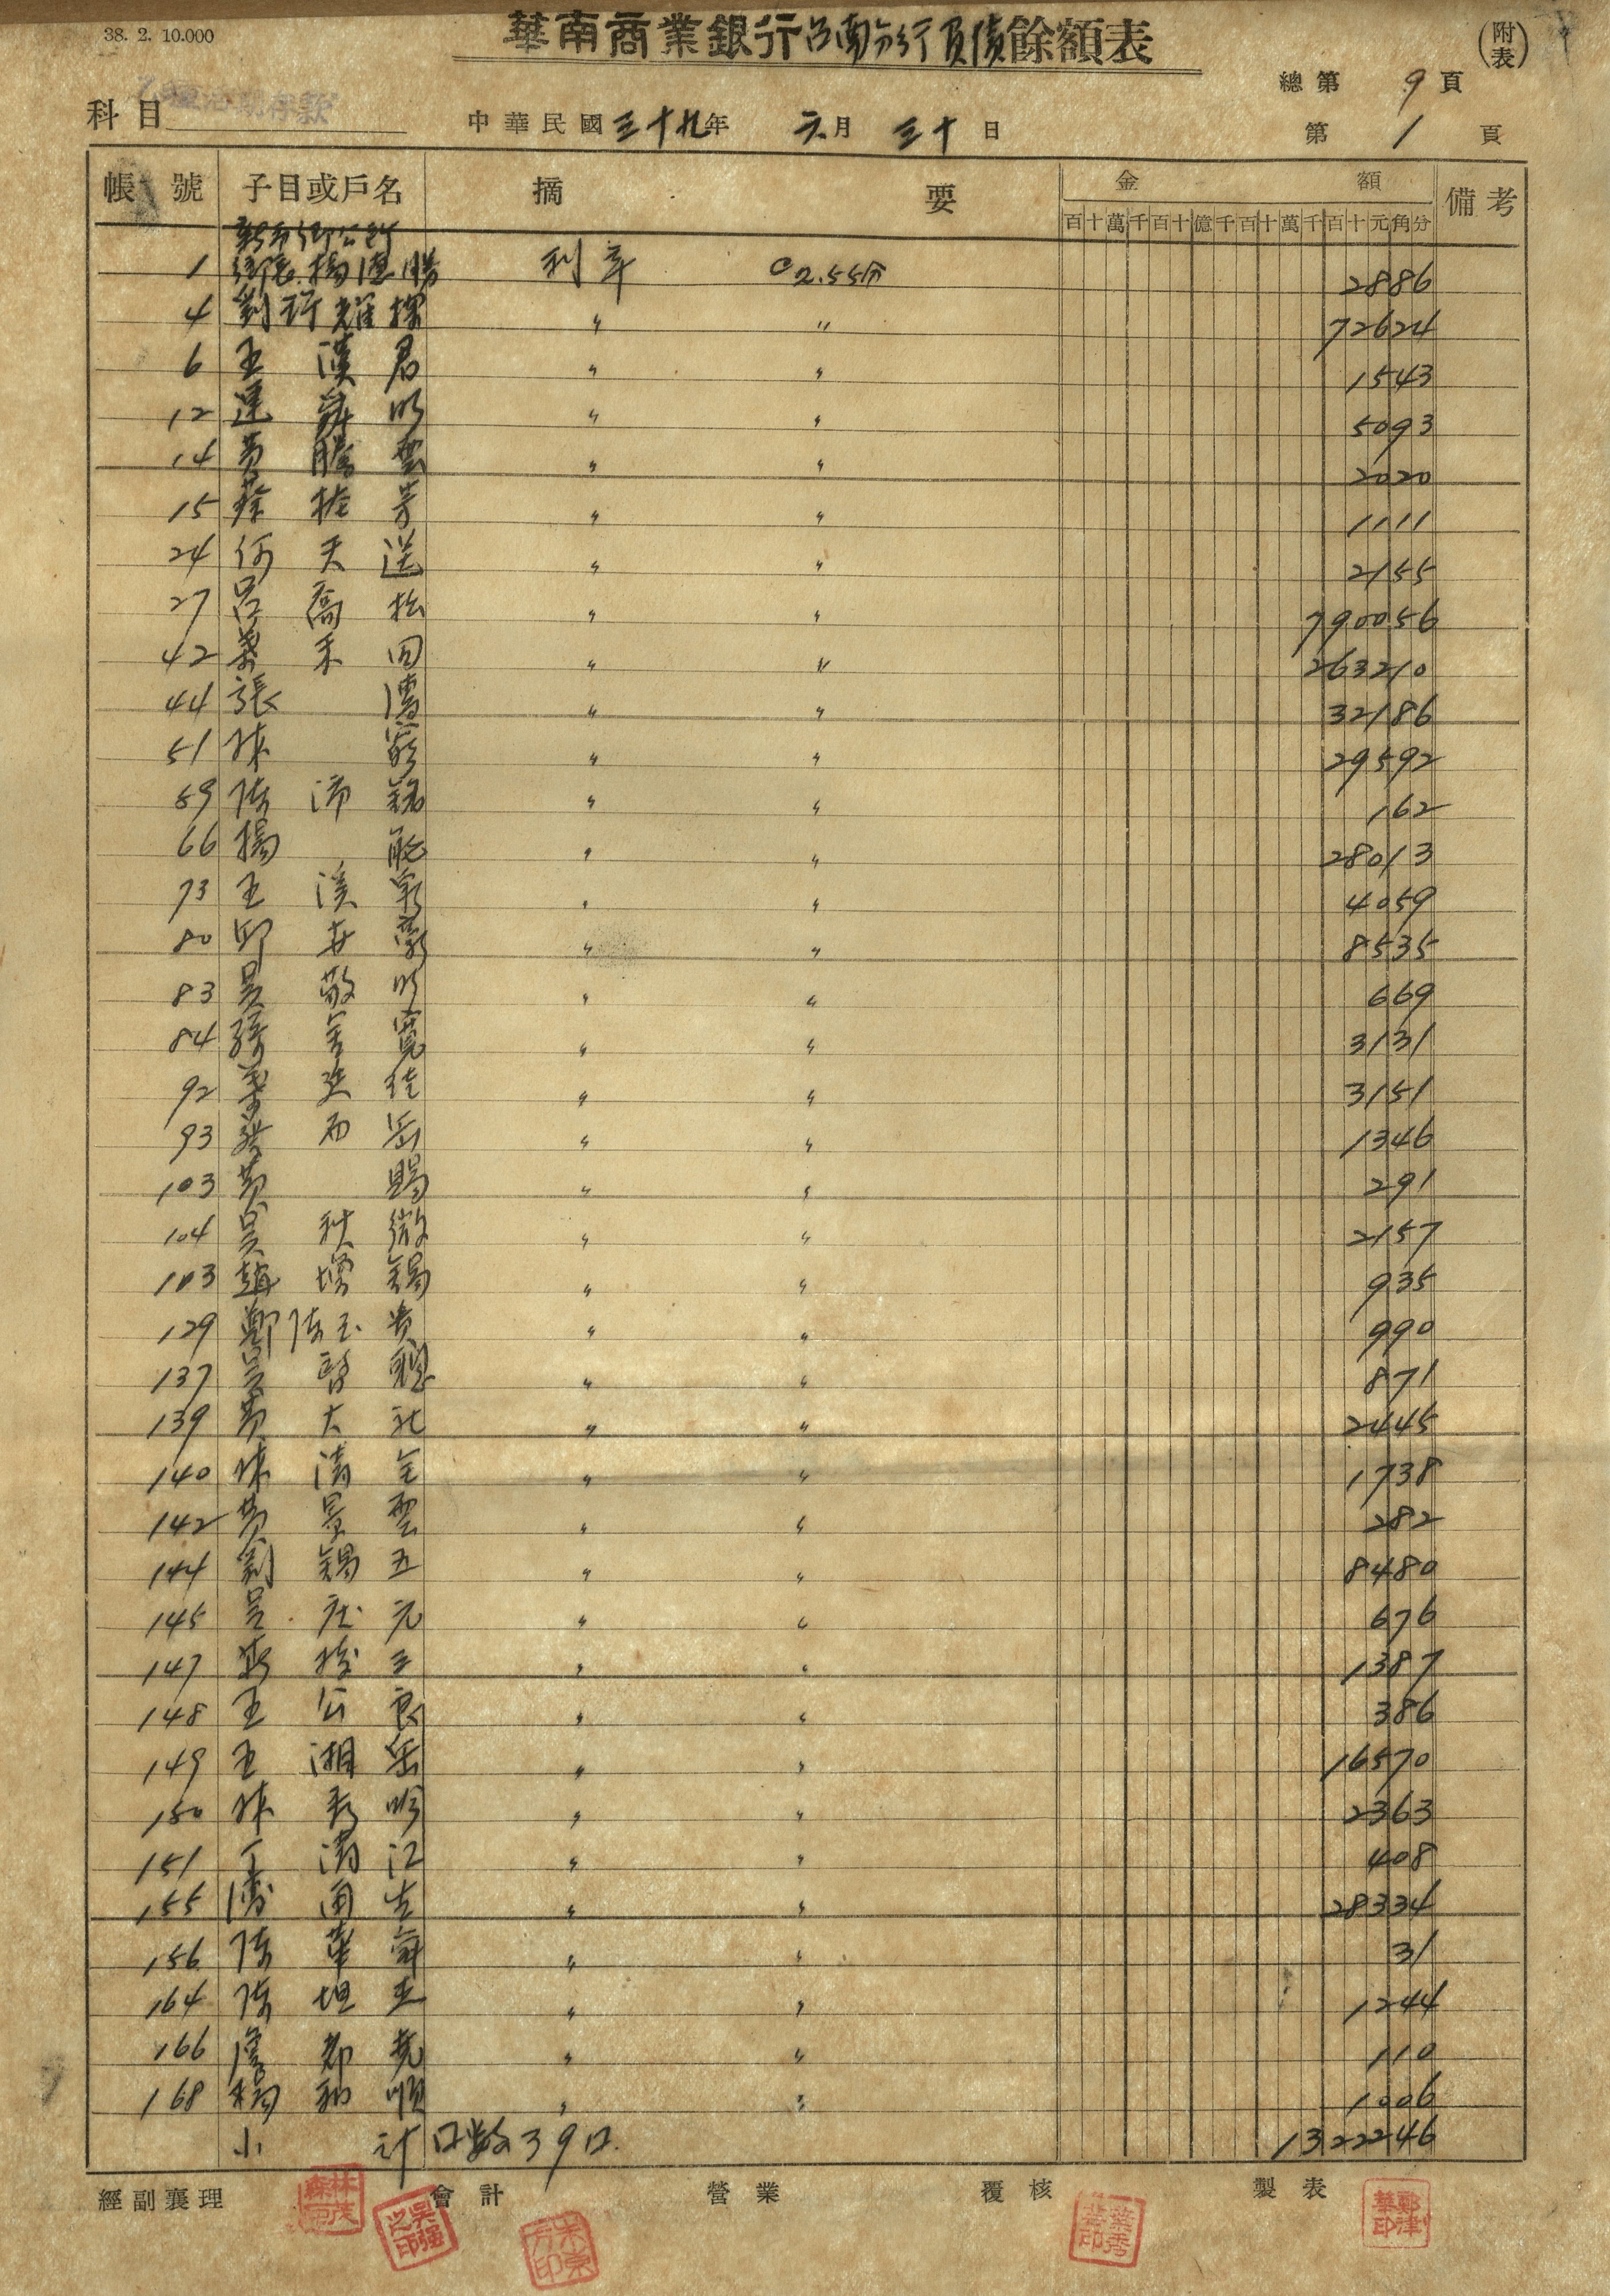 38. 2. 10.000
華南商業銀行台南分行負債餘額表
(附表)
總第 9 頁
科目 乙種活期存款
中華民國三十九年 六月 三十日
第 1 頁
帳號 子目或戶名 摘要 金額 備考
百十萬千百十億千百十萬千百十元角分
新市鄉公所
1 鄉長楊德勝 利率 @2.55分 2886
4 劉許耀操 〃 〃 72624
6 王漢君 〃 〃 1543
12 連明 〃 〃 5093
14 黃騰雲 〃 〃 2020
15 蔡芳 〃 〃 1111
24 何天送 〃 〃 2155
27 呂喬松 〃 〃 790056
42 葉禾田 〃 〃 263210
44 張 〃 〃 32186
51 林 〃 〃 29592
59 陳沛銘 〃 〃 162
66 楊 〃 〃 28013
73 王溪 〃 〃 4059
80 邱 〃 〃 8535
83 吳敬明 〃 〃 669
84 寬 〃 〃 3131
92 葉 〃 〃 3151
93 西岳 〃 〃 1346
103 黃賜 〃 〃 291
104 吳秋微 〃 〃 2157
103 趙增錫 〃 〃 935
129 鄭陳玉貴 〃 〃 990
137 吳聰 〃 〃 871
139 黃大 〃 〃 2445
140 林清全 〃 〃 1738
142 黃景雲 〃 〃 282
144 劉錫五 〃 〃 8480
145 吳元 〃 〃 676
147 三 〃 〃 1387
148 王公良 〃 〃 386
149 王湖岳 〃 〃 16570
150 林秀明 〃 〃 2363
151 丁清江 〃 〃 408
155 生 〃 〃 28334
156 陳華 〃 〃 31
164 陳坦 〃 〃 1244
166 詹堯 〃 〃 110
168 楊和順 〃 〃 1006
小計 口數39口. 1322246
經副襄理 會計 營業 覆核 製表
林茂森印
吳強之印
葉秀印
鄭津華印